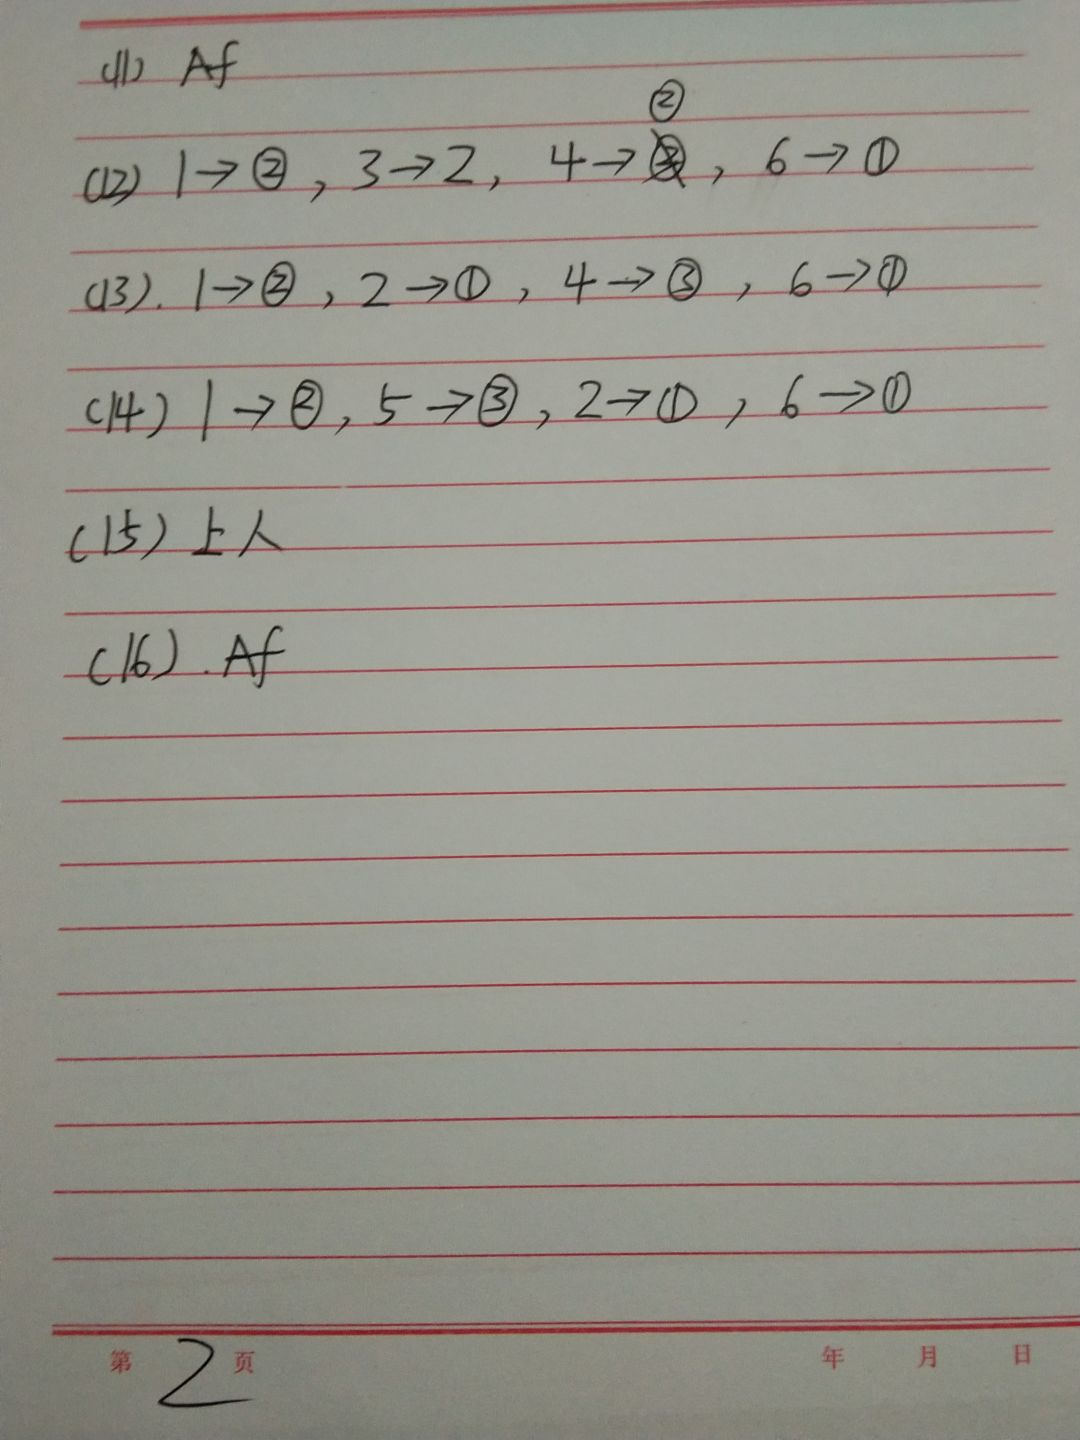 (11) Af
②
(12) 1→②, 3→2, 4→, 6→①
(13). 1→②, 2→①, 4→③, 6→①
(14) 1→②, 5→③, 2→①, 6→①
(15) 上人
(16). Af
第 2 页 年 月 日